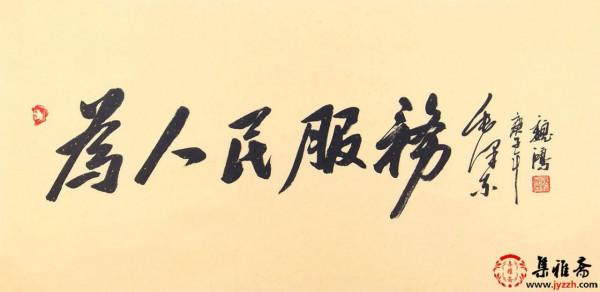 為人民服務
毛泽东
庚子年
魏鴻
集雅斋
www.jyzzh.com